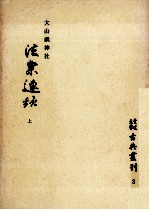 大山祇神社
法楽連歌
上
古典叢刊
3